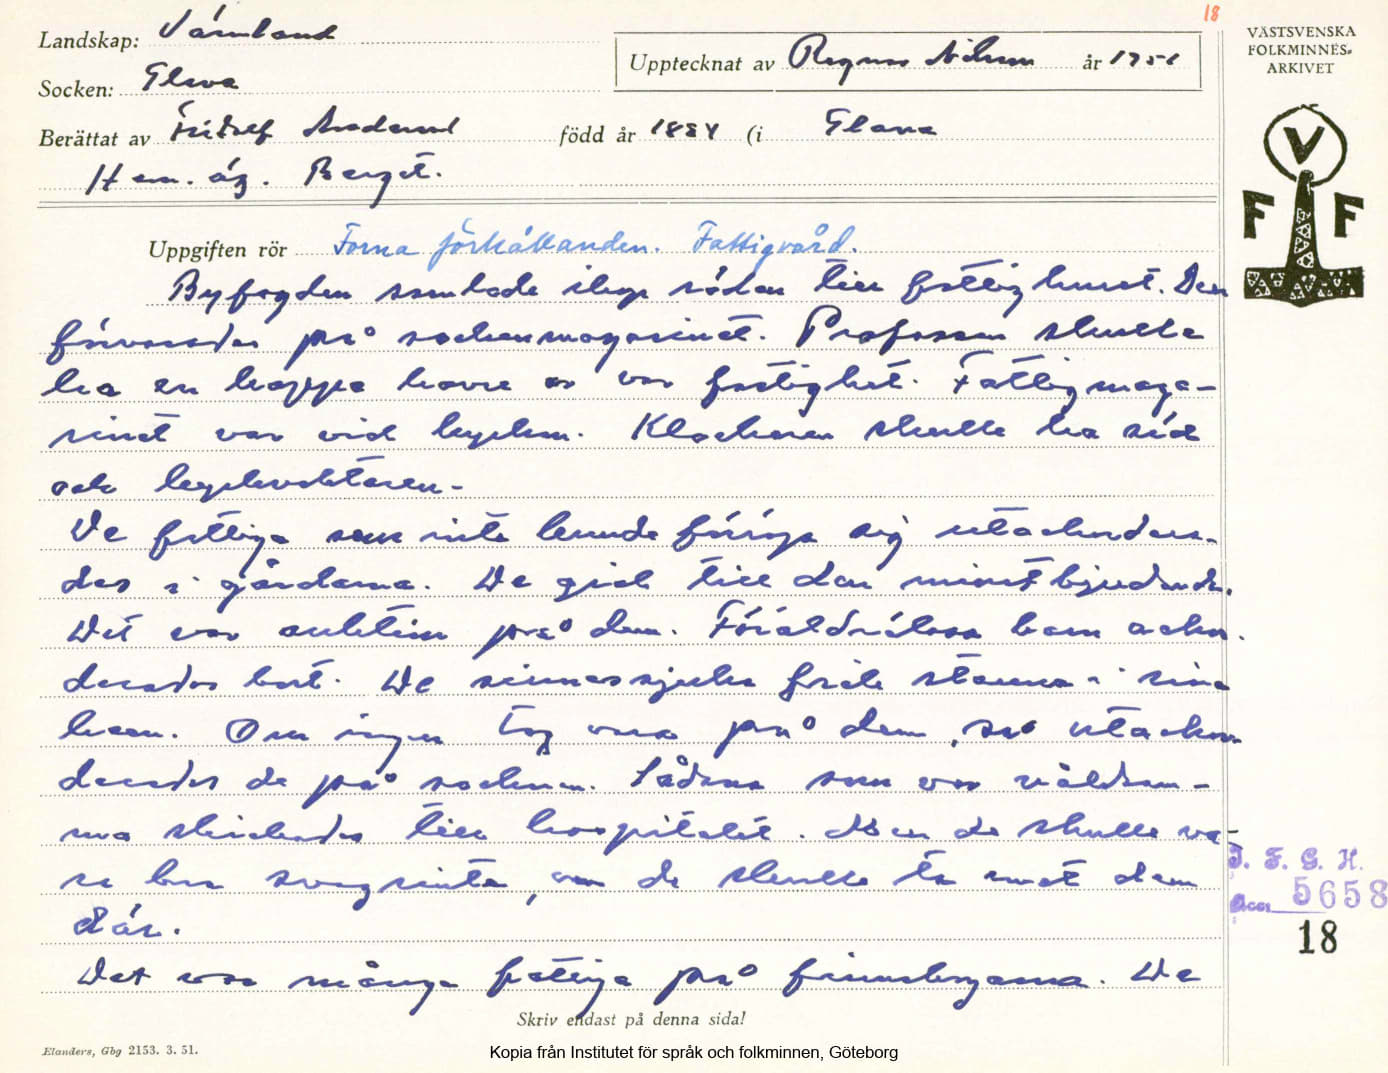 18
Landskap: Värmland
Upptecknat av Ragnar Nilsson år 1951
VÄSTSVENSKA
FOLKMINNES-
ARKIVET
Socken: Glava
Berättat av Fridolf född år 1884 (i Glava
Hem. äg. Berget.
V
F F
Uppgiften rör Forna förhållanden. Fattigvård.
Byfogden samlade ihop säden till fattighuset. Den
förvarades på sockenmagasinet. Profossen skulle
ha en kappa havre av var fastighet. Fattigmaga-
sinet var vid kyrkan. Klockaren skulle ha säd
och kyrkvaktaren.
De fattiga som inte kunde försörja sig utackorder-
des i gårdarna. De gick till den minstbjudande.
Det var auktion på dem. Föräldralösa barn ackor-
derades bort. De sinnessjuka fick stanna i sina
hem. Om ingen tog vara på dem, så utackor-
derades de på socknen. Sådana som var våldsam-
ma skickades till hospitalet. Men de skulle va-
ra bra svagsinta, om de skulle ta emot dem
där.
Det var många fattiga på finnskogarna. De
J. F. G. H.
Acc. 5658
18
Skriv endast på denna sida!
Elanders, Gbg 2153. 3. 51.
Kopia från Institutet för språk och folkminnen, Göteborg